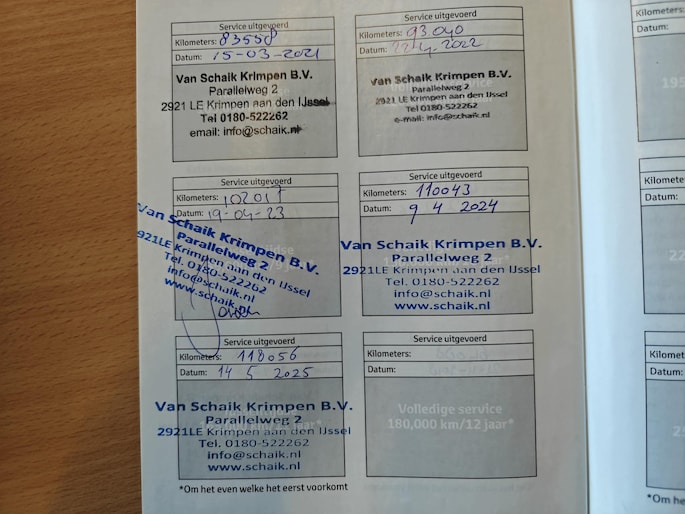 Service uitgevoerd
Kilometers: 83558
Datum: 15-03-2021
Van Schaik Krimpen B.V.
Parallelweg 2
2921 LE Krimpen aan den IJssel
Tel 0180-522262
email: info@schaik.nl
Service uitgevoerd
Kilometers: 93040
Datum: 22-4-2022
Van Schaik Krimpen B.V.
Parallelweg 2
2921 LE Krimpen aan den IJssel
Tel 0180-522262
e-mail: info@schaik.nl
Service uitgevoerd
Kilometers: 102017
Datum: 19-04-23
Van Schaik Krimpen B.V.
Parallelweg 2
2921LE Krimpen aan den IJssel
Tel. 0180-522262
info@schaik.nl
www.schaik.nl
Service uitgevoerd
Kilometers: 110043
Datum: 9 4 2024
Van Schaik Krimpen B.V.
Parallelweg 2
2921LE Krimpen aan den IJssel
Tel. 0180-522262
info@schaik.nl
www.schaik.nl
Service uitgevoerd
Kilometers: 118056
Datum: 14 5 2025
Van Schaik Krimpen B.V.
Parallelweg 2
2921LE Krimpen aan den IJssel
Tel. 0180-522262
info@schaik.nl
www.schaik.nl
Service uitgevoerd
Kilometers:
Datum:
Volledige service
180,000 km/12 jaar*
*Om het even welke het eerst voorkomt